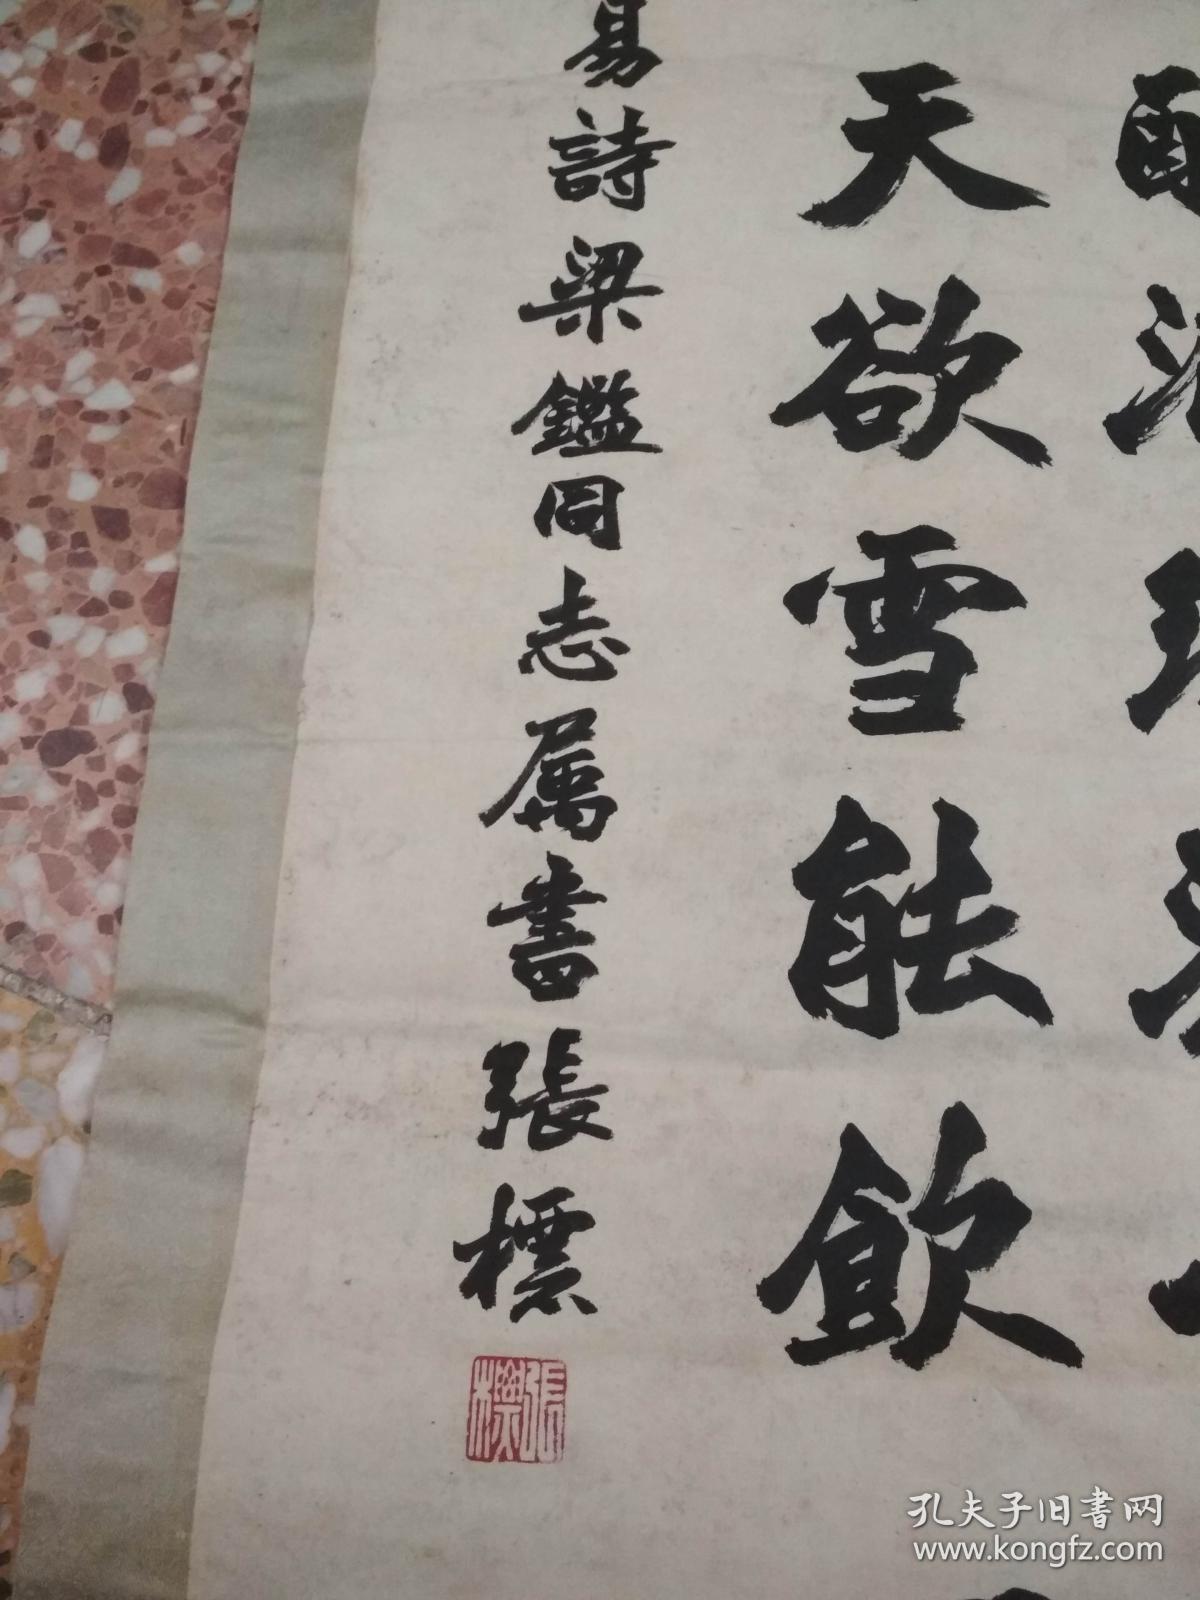 天欲雪能飲
易詩梁鑑同志属書張標
張標
孔夫子旧书网
www.kongfz.com